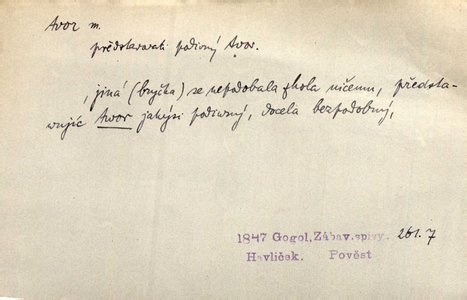 tvor m.
představovati podivný tvor.
, jiná (bryčka) se nepodobala zhola ničemu, představ-
wujíc twor jakýsi podiwný, docela bezpodobný,
1847 Gogol, Zábav. spisy. 261.7
Havlíček. Pověst